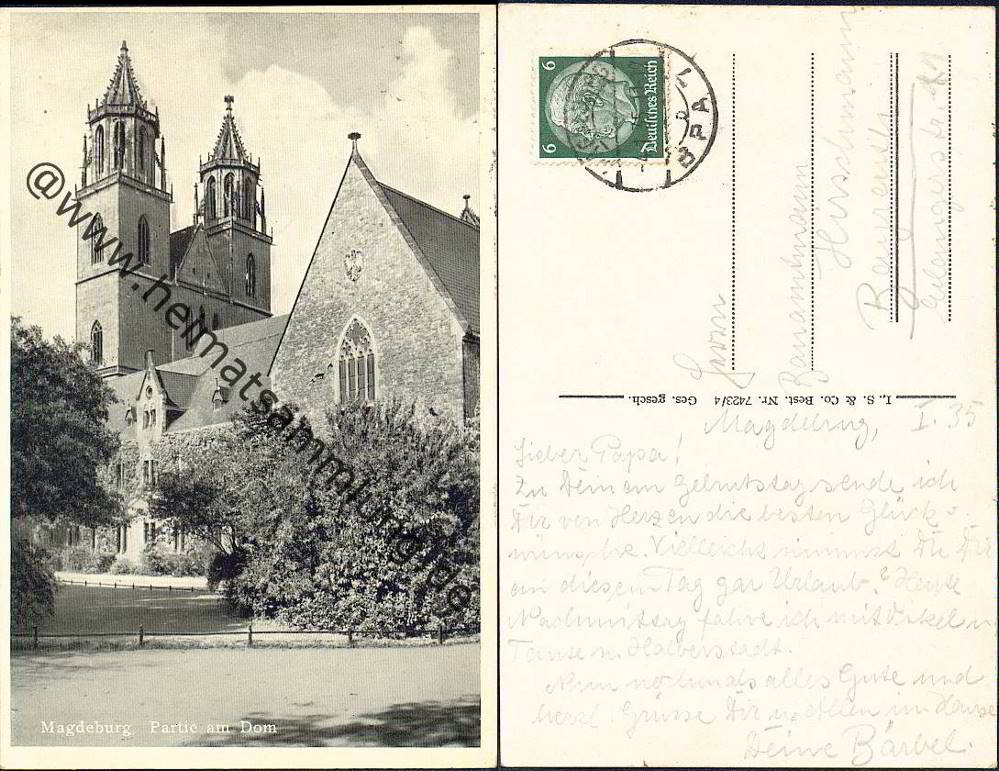 @www.heimatsammlung.de
Magdeburg Partie am Dom
6
6
Deutsches Reich
Herrn
Hirschmann
L. S. & Co. Best. Nr. 7423/4 Ges. gesch.
Magdeburg, I. 35
Lieber Papa!
Zu Deinem Geburtstag sende ich
Dir von Herzen die besten Glück-
wünsche. Vielleicht nimmst Du Dir
an diesem Tag gar Urlaub? Heute
Nachmittag fahre ich mit Onkel u.
Tante n. Halberstadt.
Nun nochmals alles Gute und
herzl. Grüsse Dir u. Allen im Hause
Deine Bärbel.